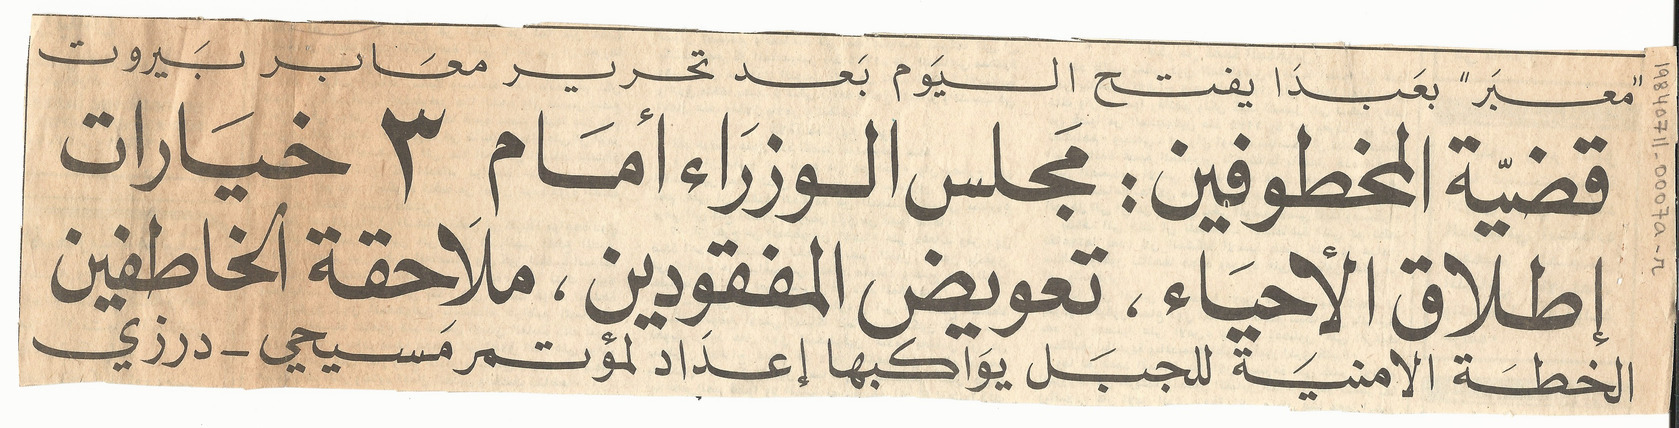 "معبَر" بعَبدَا يفتح اليَوم بَعد تحرير معَابر بيَروت
قضيّة المخطوفين: مجَلس الوزرَاء أمَام ٣ خيَارات
إطلاق الأحيَاء، تعويض المفقودين، ملَاحقة الخاطفين
الخطَة الامنيَة للجبَل يوَاكبها إعدَاد لمؤتمر مَسيحي - درزي
19840711-0007a-n